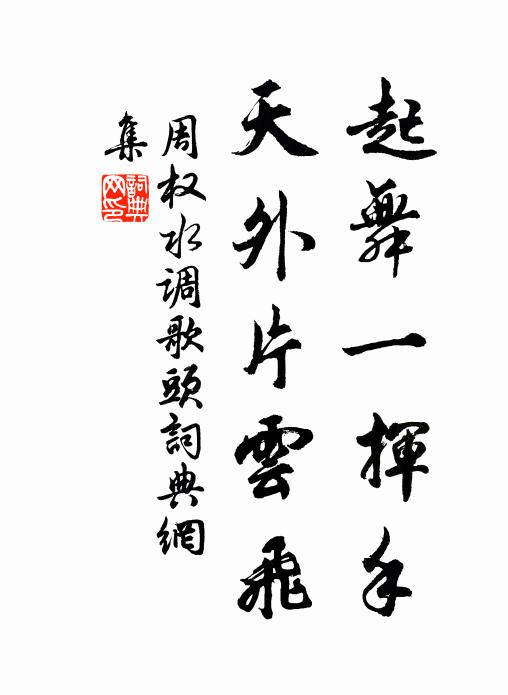 起舞一揮手
天外片雲飛
周权水调歌頭詞典網
集
詞典
网印